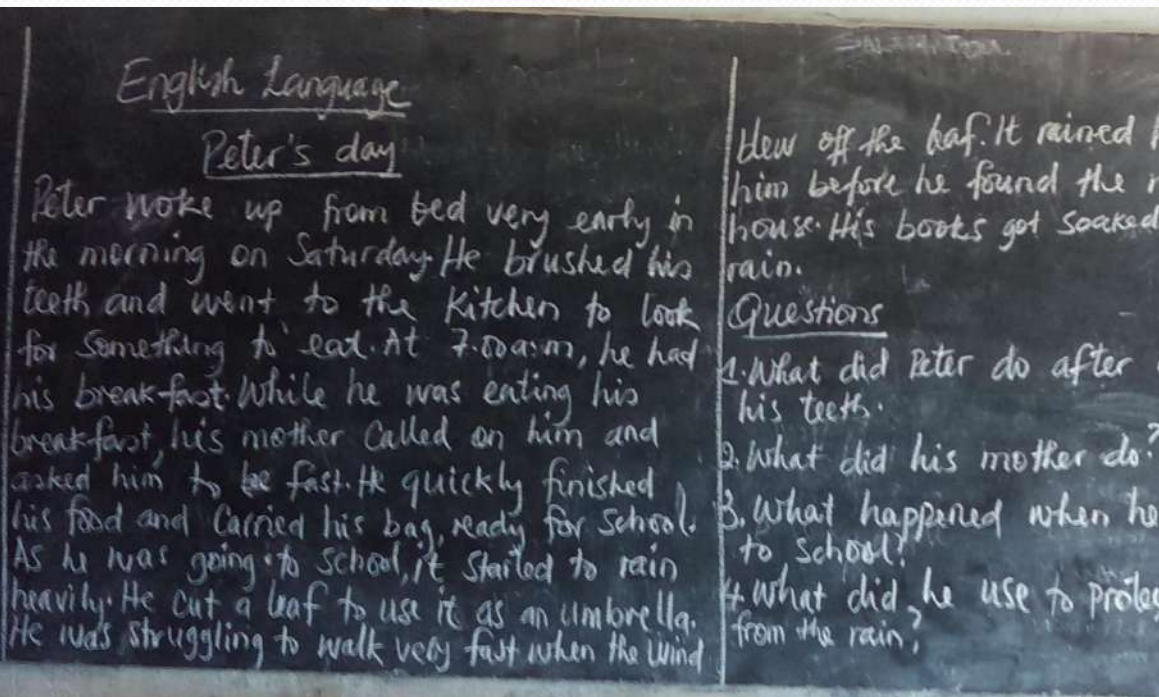 English Language
Peter's day
Peter woke up from bed very early in
the morning on Saturday. He brushed his
teeth and went to the Kitchen to look
for something to eat. At 7.00a:m, he had
his breakfast. While he was eating his
breakfast, his mother Called on him and
asked him to be fast. He quickly finished
his food and Carried his bag, ready for School.
As he was going to School, it started to rain
heavily. He cut a leaf to use it as an umbrella.
He was struggling to walk very fast when the wind
blew off the leaf. It rained
him before he found the
house. His books got soaked
rain.
Questions
1. What did Peter do after
his teeth.
2. What did his mother do?
3. What happened when he
to School?
4. What did he use to
from the rain?